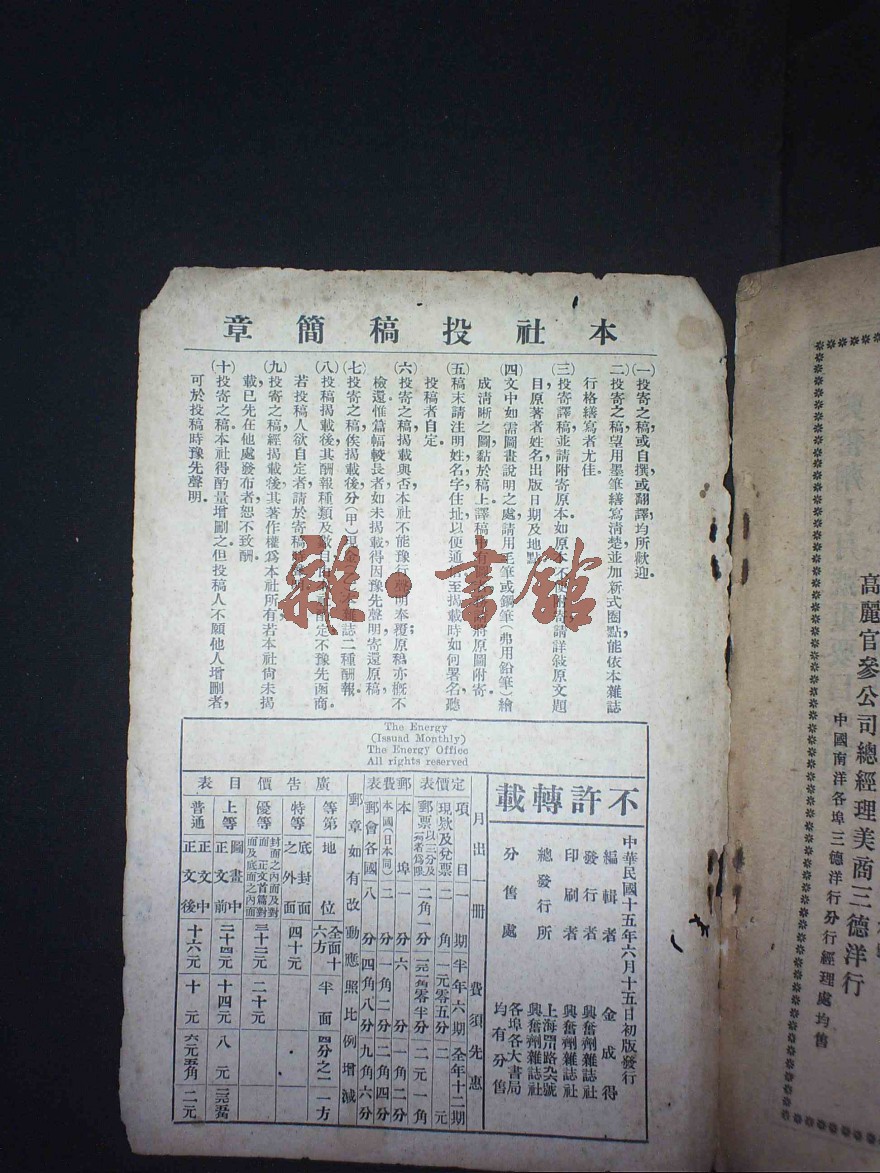 本社投稿簡章
㈠投寄之稿或自撰或翻譯均所歡迎。
㈡投寄之稿望用墨筆繕寫清楚並加新式圈點能依本雜誌
行格繕寫者尤佳。
㈢投寄譯稿並請附寄原本如原本
請詳敍原文題
目原著者姓名出版日期及地點
㈣文中如需圖畫說明之處請用毛筆或鋼筆(弗用鉛筆)繪
成清晰之圖黏於稿上譯稿
將原圖附寄。
㈤稿末請注明姓名字住址以便通信至揭載時如何署名聽
投稿者自定。
㈥投寄之稿揭載與否本社不能豫行聲明奉覆原稿亦概不
檢還惟篇幅較長者如未揭載得因豫先聲明寄還原稿。
㈦投寄之稿俟揭載後分(甲)現
雜誌二種酬報。
㈧投稿揭載後其酬報種類及數目
定不豫先函商
若投稿人欲自定者請於寄稿
㈨投寄之稿經揭載後其著作權爲本社所有若本社尙未揭
載已先在他處發布者恕不致酬。
㈩投寄之稿本社得酌量增刪之但投稿人不願他人增刪者,
可於投稿時豫先聲明。
雜·書館
The Energy
(Issuad Monthly)
The Energy Office
All rights reserved
不許轉載
中華民國十五年六月十五日初版發行
編輯者 金成得
發行者 興奮劑雜誌社
印刷者 興奮劑雜誌社
總發行所 上海
興奮劑雜誌社
分售處 各埠各大書局均有分售
月出一冊 費須先惠
定價表 項目 一期 半年六期 全年十二期
現欵及兌票 二角 一元零五分 二元
郵票 二角一分 二元一角
郵費表 本埠 一分 六分 一角二分
本國(日本同) 二分 一角二分 二角四分
郵會各國 八分 四角八分 九角六分
郵章如有改動應照比例增減
廣告價目表
等第 地位 全面十六方 半面 四分之一 一方
特等 底封面之外面 四十元
優等 封面之內面及對面正文首篇對面及底面之內面 三十二元 二十元
上等 圖畫中正文前 二十四元 十四元 八元
普通 正文中正文後 十六元 十元 六元五角 二元
高麗官參公司總經理美商三德洋行
中國南洋各埠三德洋行分行經理處均售